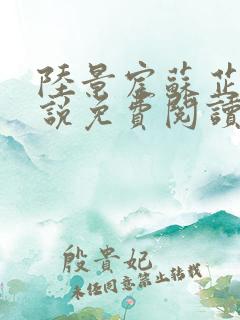 陸景宸蘇芷
說免費閱讀
殷貴妃
未经同意禁止转载